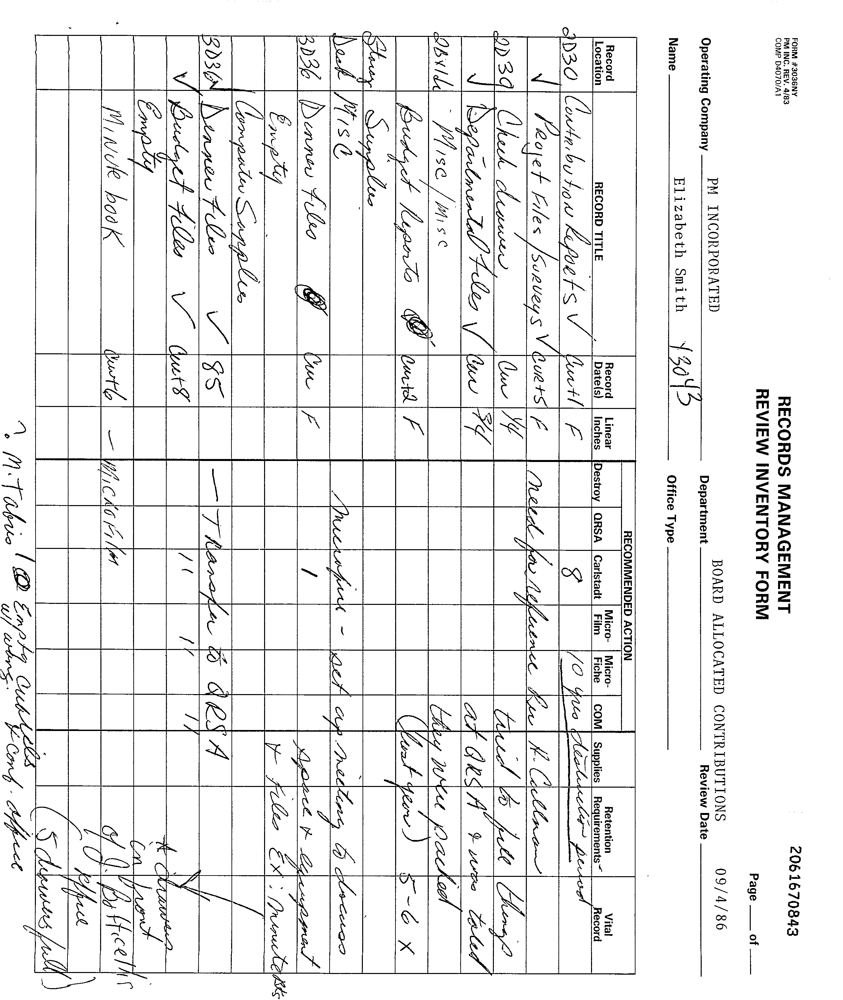 FORM #3036NY
PM INC. REV. 4/83
COMP D4070/A1
RECORDS MANAGEMENT
REVIEW INVENTORY FORM
2061670843
Page ___ of ___
Operating Company PM INCORPORATED Department BOARD ALLOCATED CONTRIBUTIONS Review Date 09/4/86
Name Elizabeth Smith Y3043 Office Type
RECOMMENDED ACTION
Record Location RECORD TITLE Record Date(s) Linear Inches Destroy QRSA Carlstadt Micro-Film Micro-Fiche COM Supplies Retention Requirements Vital Record
2D30 Contribution Reports ✓ Cur+1 F 8 10 yrs destruction period
✓ Projet Files/Surveys ✓ Cur+5 F need for reference per H. Cullman
2D30 Check drawer Cur 1/4 tried to pull things
✓ Departmental Files ✓ Cur 3/4 at QRSA & was told
Misc/Misc they were packed
Budget Reports Cur+2 F (last year) 5-6 x
Storage Supplies
Desk Misc Microfilm - set up meeting to discuss
3D36 Dinner Files Cur F space & equipment
Empty + Files Ex: minute bks
Computer Supplies
3D36 Dinner Files ✓ 85 — Transfer to QRSA
✓ Budget Files ✓ Cur+8 " " "
Empty 
Minute book Cur+6 — Microfilm
drawers
in front
of J. Botticelli's
office
(5 drawers full)
? M. Tabris / Empty cubicles
w/ & conf. office